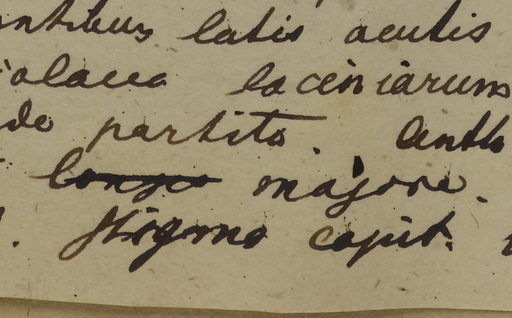 ntibus latis acutis
olacea laciniarum
de partito. Anth
longo majore.
Stigma caput.